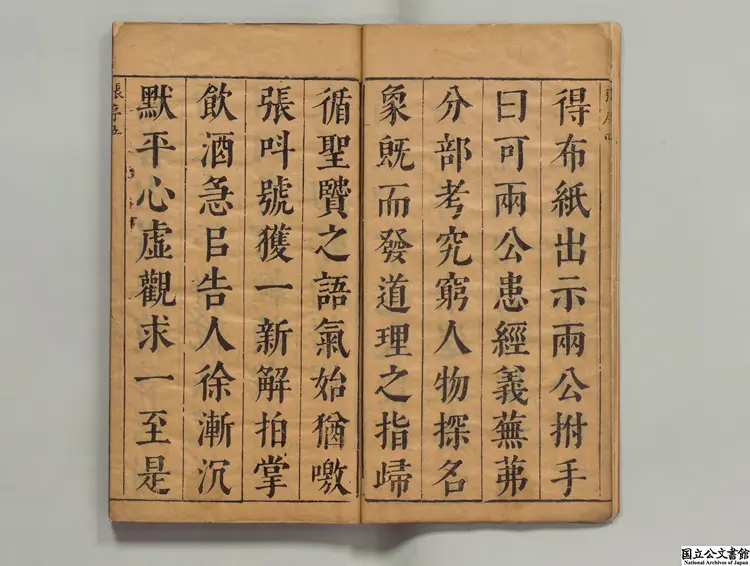 得布紙出示兩公拊手
曰可兩公患經義蕪茀
分部考究窮人物探名
象旣而發道理之指歸
循聖贒之語氣始猶噭
張呌號獲一新解拍掌
飮酒急㠯告人徐漸沉
默平心虛觀求一至是
張序五
国立公文書館
National Archives of Japan